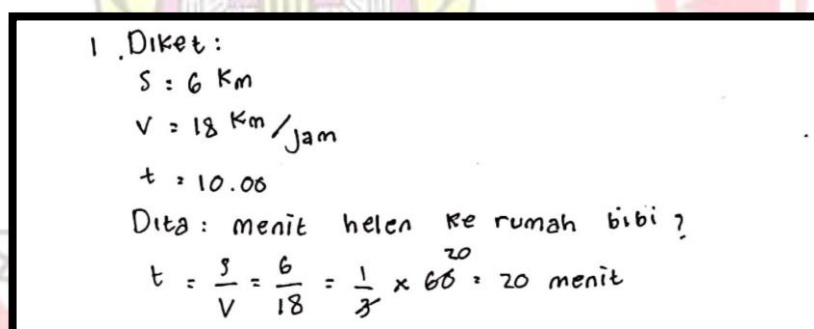 1. Diket:
S : 6 Km
V = 18 Km/Jam
t = 10.00
Dita : menit helen ke rumah bibi ?
t = S/V = 6/18 = 1/3 x 60 = 20 menit
20